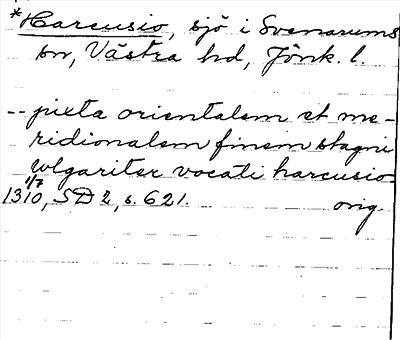 *Harcusio, sjö i Svenarums
sn, Västra hd, Jönk. l.
-- juxta orientalem et me-
ridionalem finem stagni
wlgariter vocati harcusio
1/7
1310, SD 2, s. 621. orig